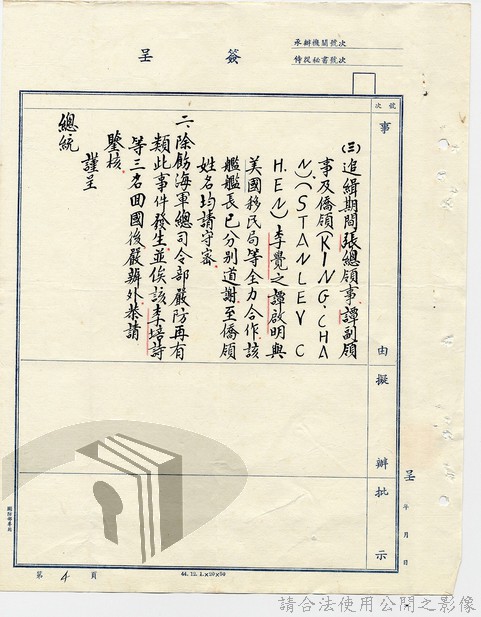 承辦機關號次
侍從秘書號次
簽呈
號次
事由
擬辦
批示
呈 年 月 日
(三)追緝期間張總領事.譚副領
事及僑領(KING.CHA
N)(STANLEY C
HEN)李覺之譚啟明與
美國移民局等全力合作.該
艦艦長已分別道謝.至僑領
姓名均請守密.
二、除飭海軍總司令部嚴防再有
類此事件發生並俟該李培詩
等三名回國後嚴辦外恭請
鑒核.
謹呈
總統
國防部專用
第 4 頁
44.12.1.×20×50
請合法使用公開之影像